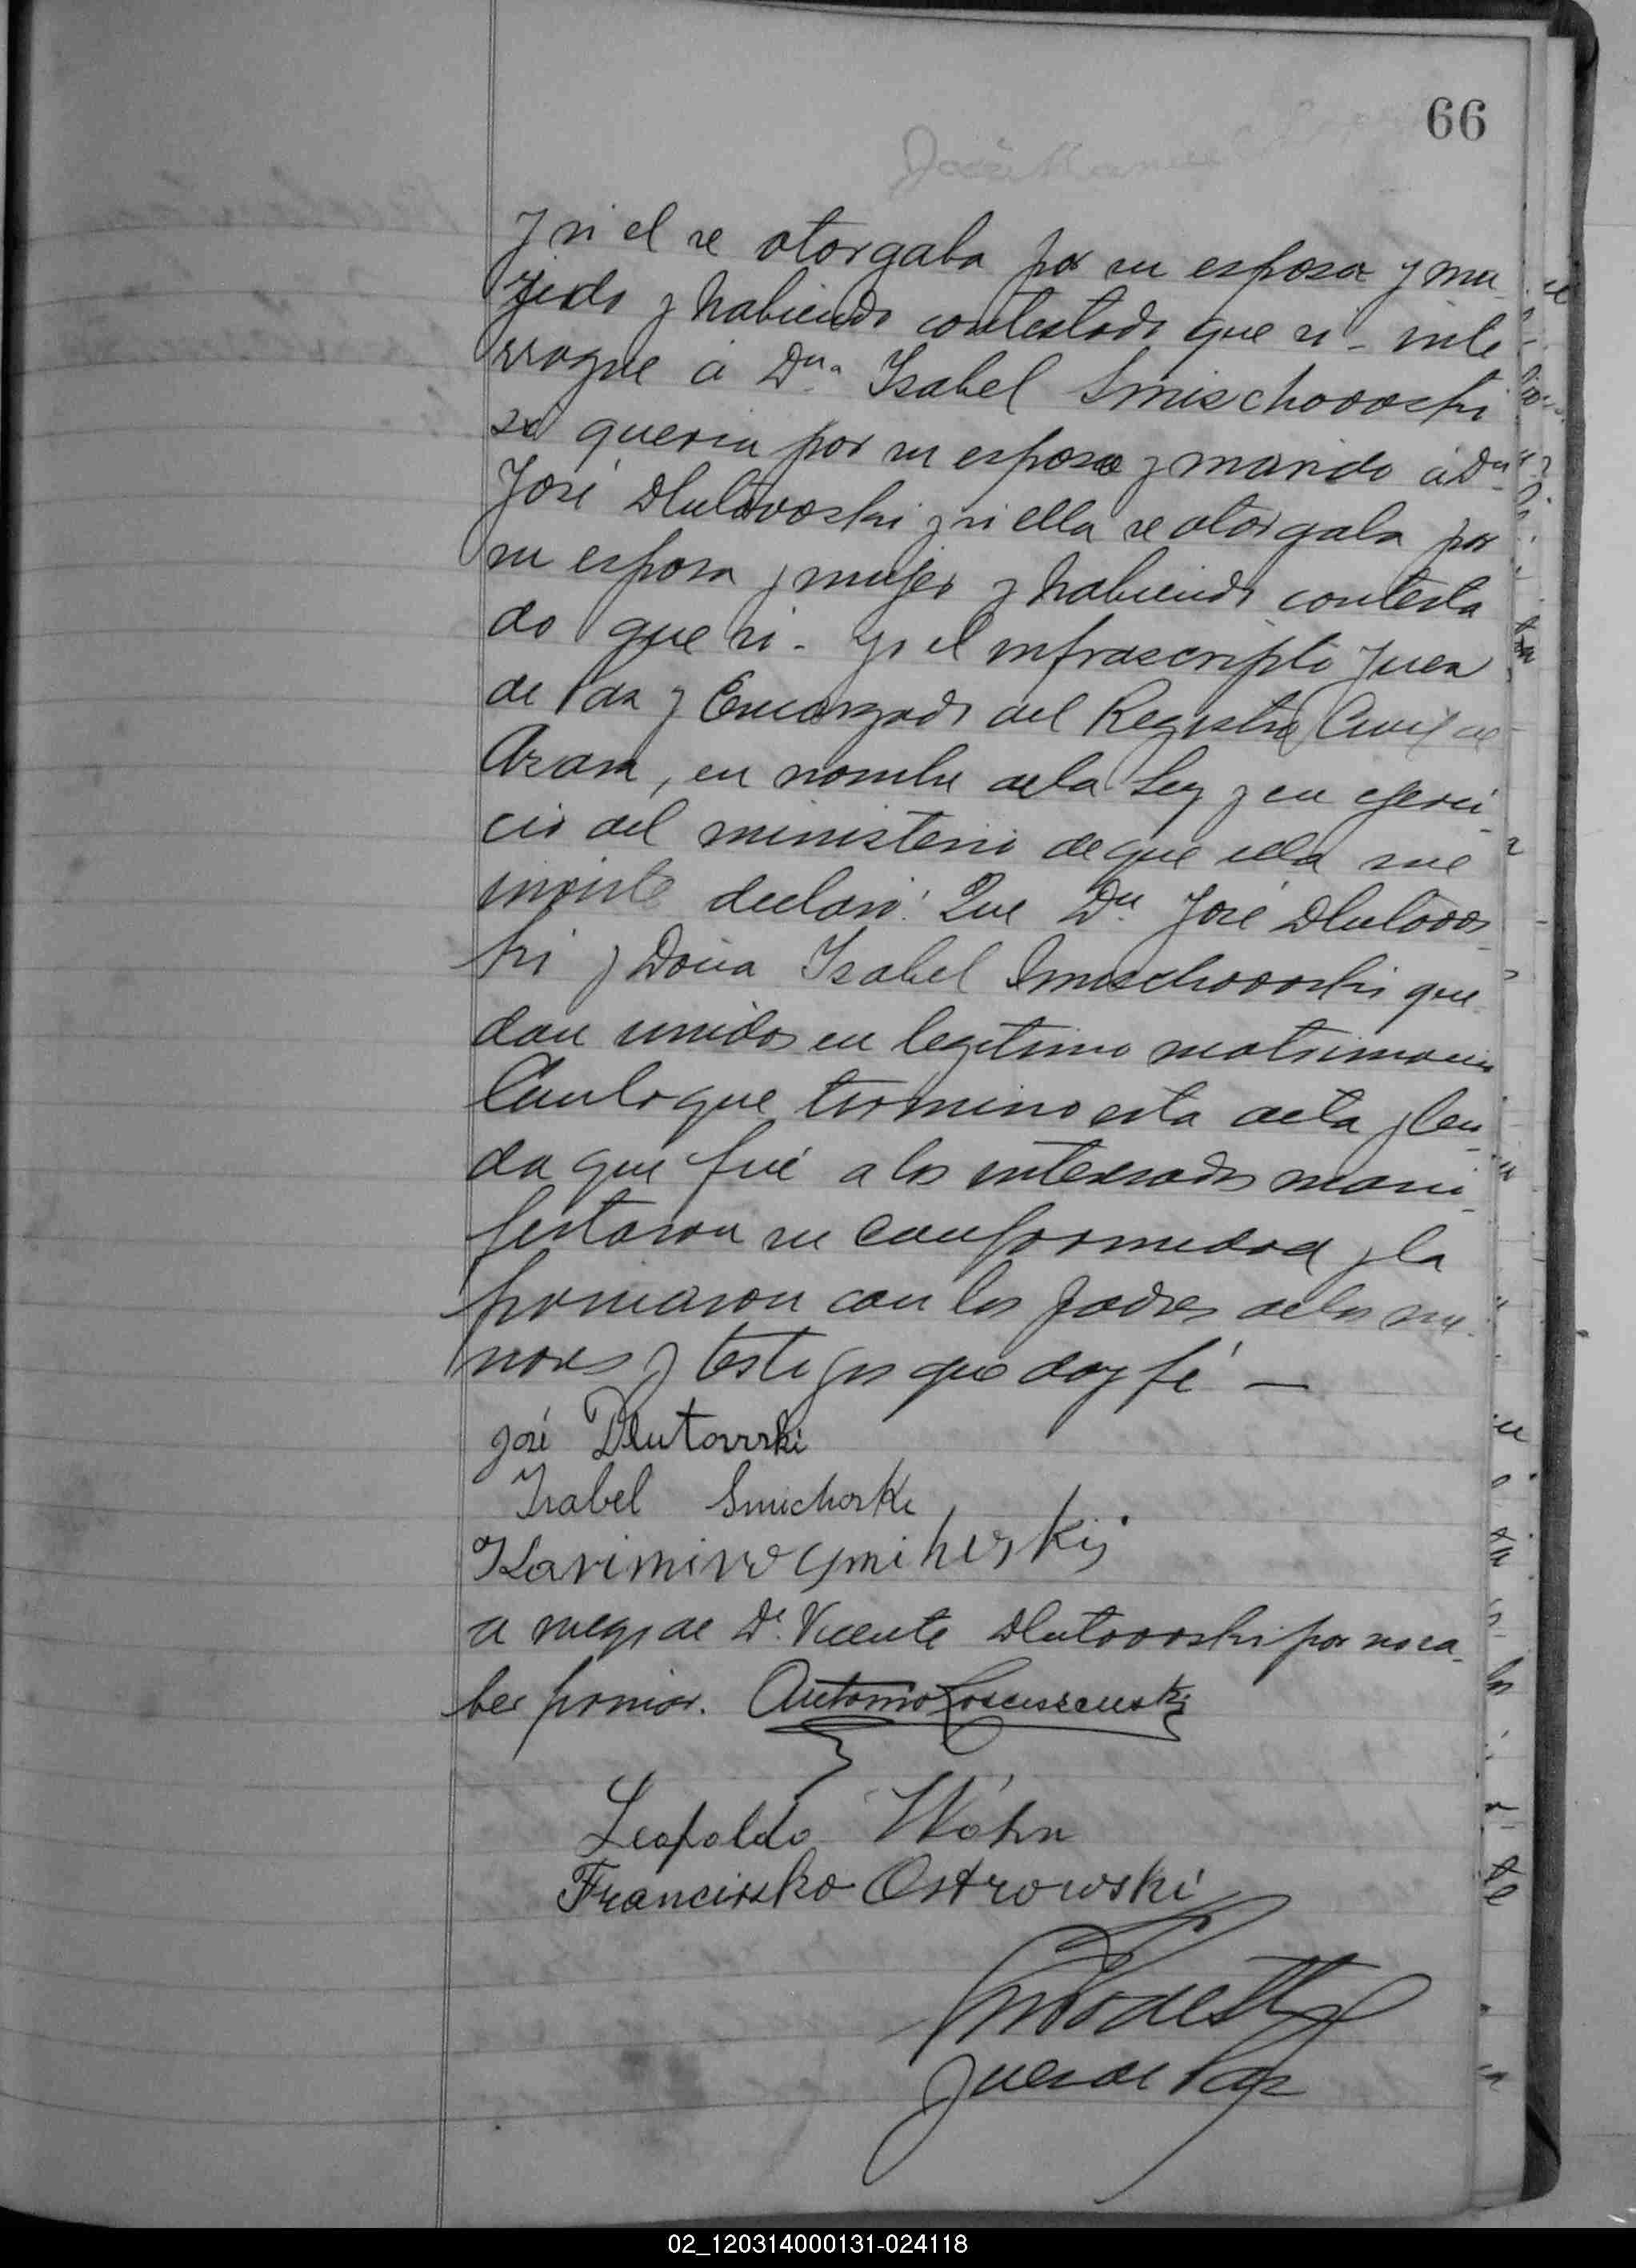 66
y si el se otorgaba por su esposo y ma-
rido y habiendo contestado que si - inte
rrogué á Dna. Isabel Smischowoski
si queria por su esposo y marido á Dn
José Dlutowoski y si ella se otorgaba por
su esposa y mujer y habiendo contesta
do que si - yo el infrascripto Juez
de Paz y Encargado del Registro Civil de
Azara, en nombre de la Ley y en ejerci-
cio del ministerio de que ella me
inviste declaro: Que Dn José Dlutowos-
ki y Doña Isabel Smischowoski que-
dan unidos en legitimo matrimonio
Con lo que termino esta acta y lei-
da que fué a los interesados mani-
festaron su conformidad y la
firmaron con los padres de los me-
nores y testigos que doy fé —
José Dlutowski
Isabel Smichoski
Kasimiro Smihoskij
a ruego de Dn. Vicente Dlutowoski por no sa-
ber firmar. Antonio
Leopoldo Wöhn
Francissko Ostrowski
Juez de Paz
02_120314000131-024118